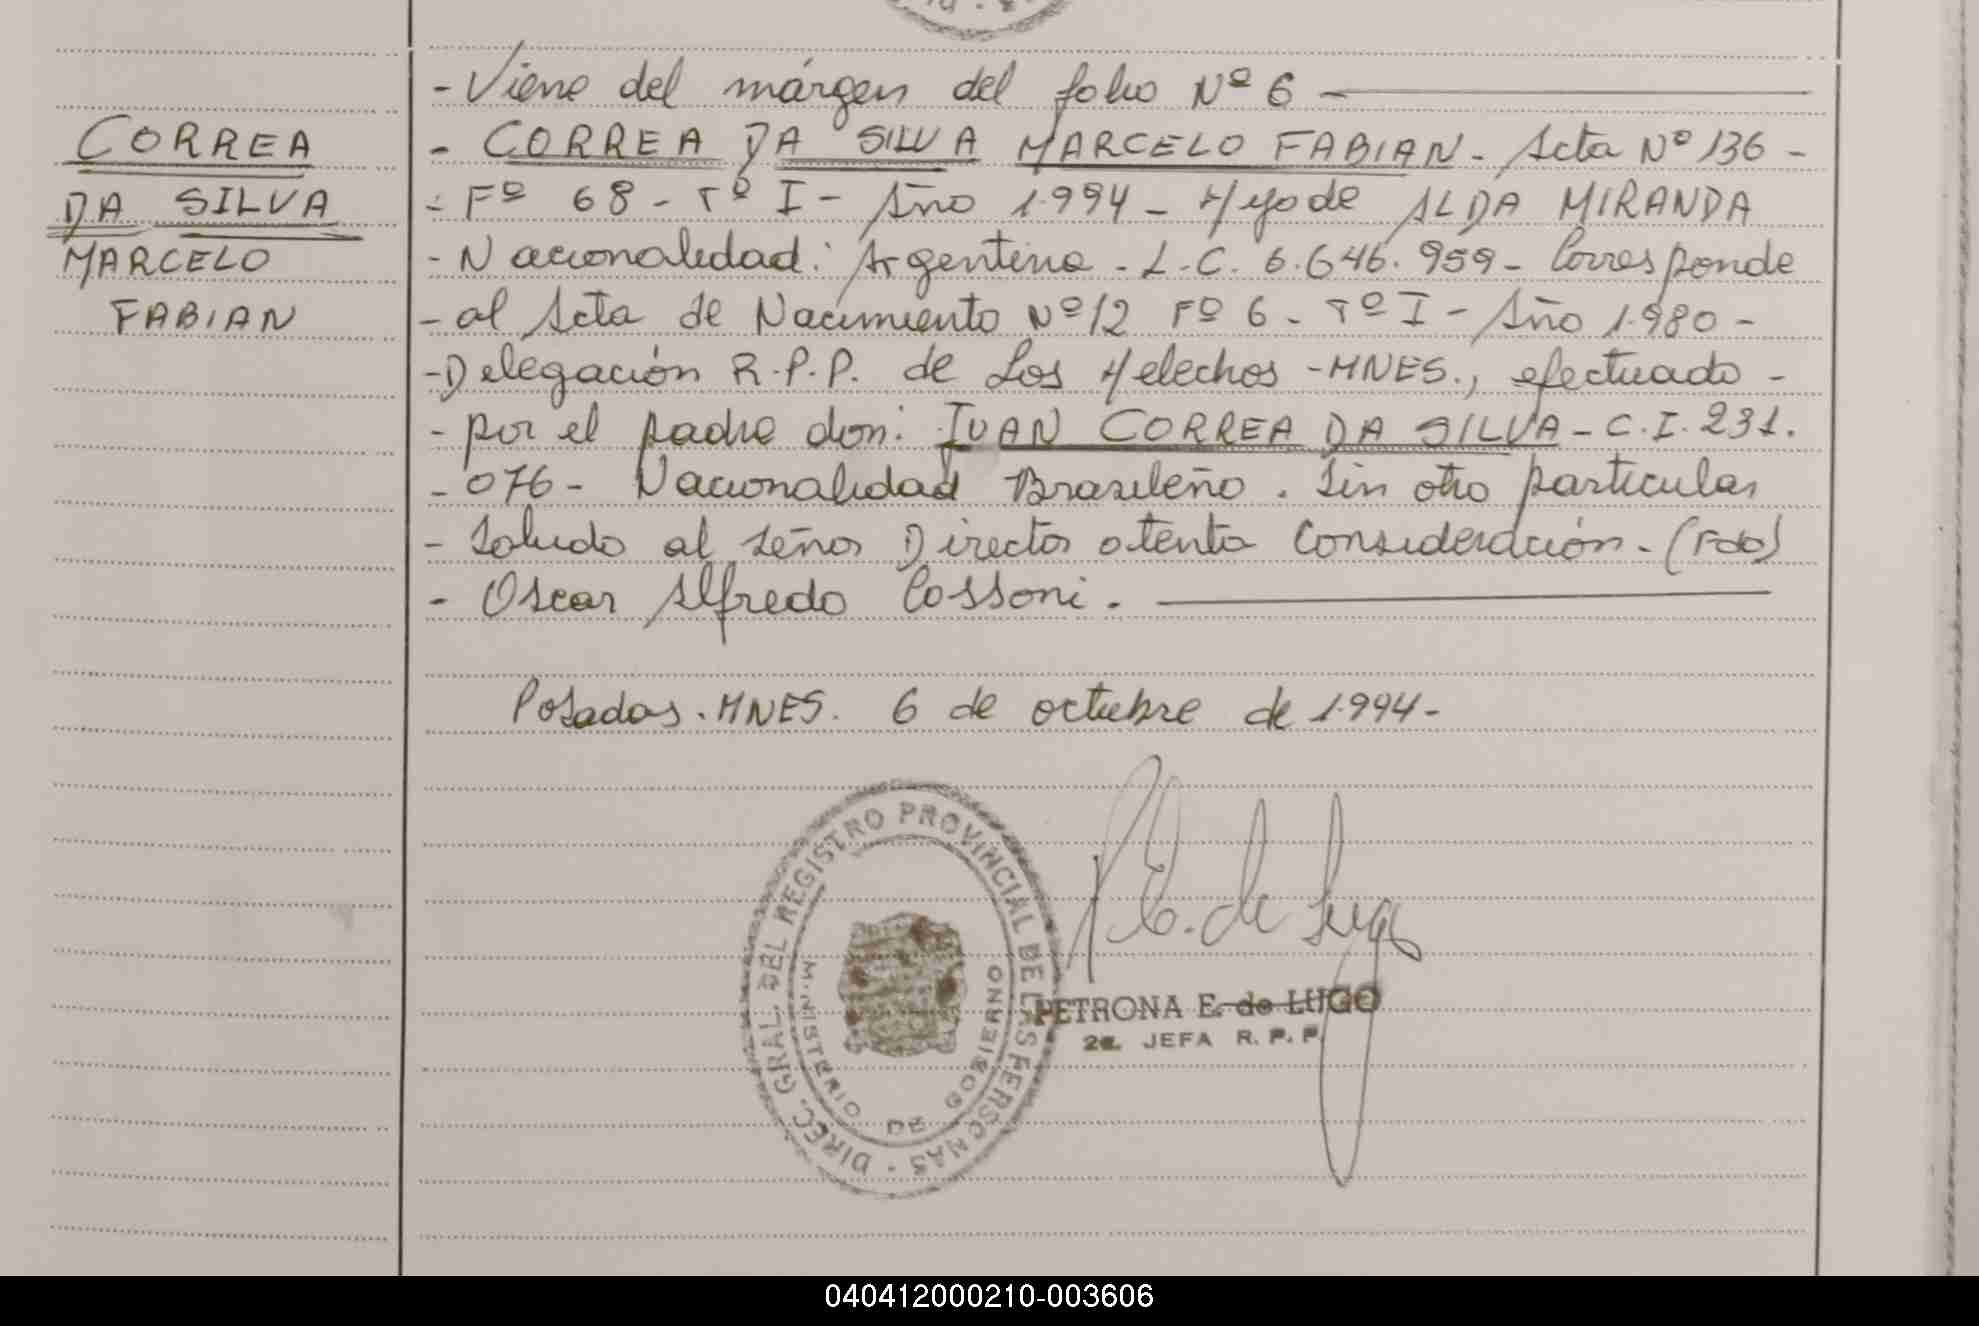 - Viene del márgen del folio Nº 6 -
CORREA
DA SILVA
MARCELO
FABIAN
- CORREA DA SILVA MARCELO FABIAN - Acta Nº 136 -
- Fº 68 - Tº I - Año 1.994 - Hijo de ALDA MIRANDA
- Nacionalidad: Argentina - L.C. 6.646.959 - Corresponde
- al Acta de Nacimiento Nº 12 Fº 6 - Tº I - Año 1.980 -
- Delegación R.P.P. de Los Helechos - MNES., efectuado -
- por el padre don: IVAN CORREA DA SILVA - C.I. 231.
- 076 - Nacionalidad Brasileño. Sin otro particular
- Saludo al Señor Director atenta Consideración. (Fdo)
- Oscar Alfredo Cossoni.
Posadas. MNES. 6 de octubre de 1.994 -
DIREC. GRAL. DEL REGISTRO PROVINCIAL DE LAS PERSONAS
MINISTERIO DE GOBIERNO
P. E. de Lugo
PETRONA E. de LUGO
2a. JEFA R. P. P.
040412000210-003606